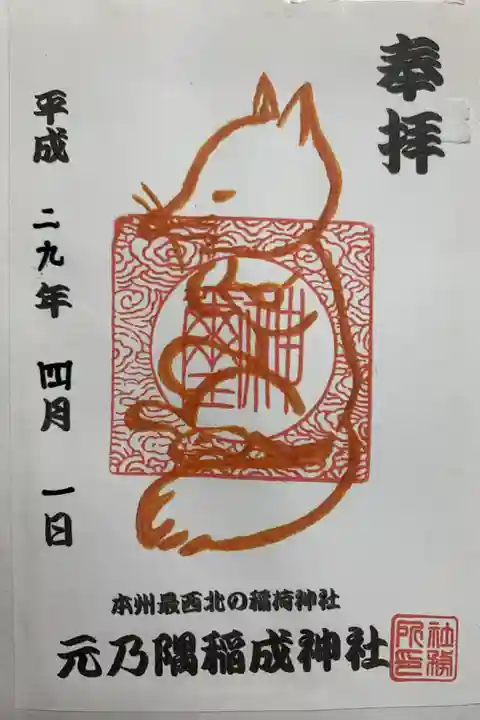 奉拝
平成 二九年 四月 一日
本州最西北の稲荷神社
元乃隅稲成神社
社務所印